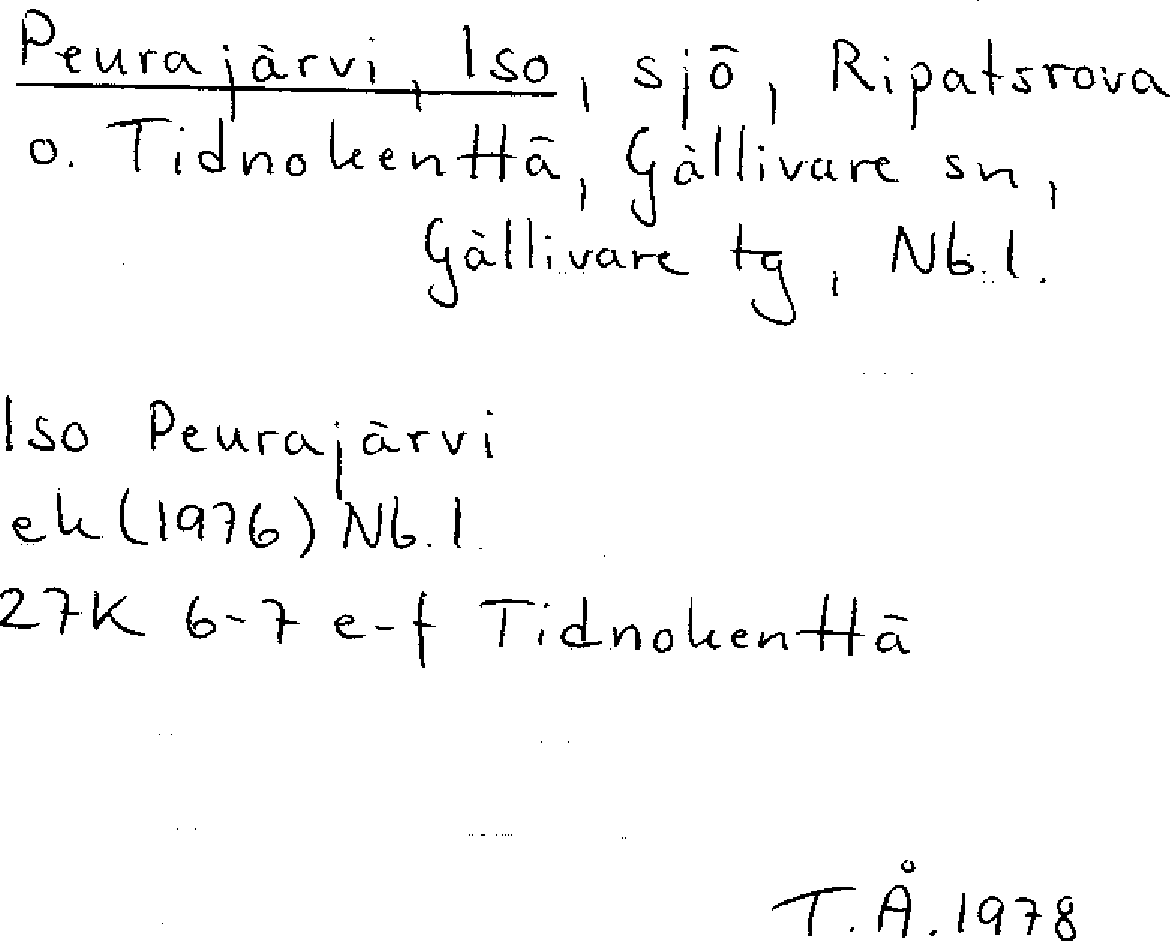 Peurajärvi, Iso, sjö, Ripatsrova
o. Tidnokenttä, Gällivare sn,
Gällivare tg, Nb.l.
Iso Peurajärvi
ek (1976) Nb.l.
27K 6-7 e-f Tidnokenttä
T.Å. 1978